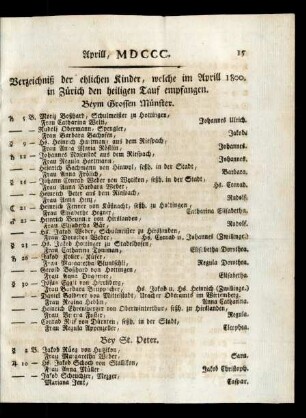 Aprill, MDCCC. 15
Verzeichniß der ehlichen Kinder, welche im Aprill 1800,
in Zürich den heiligen Tauf empfangen.
Beym Grossen Münster.
5 B. Marx Boßhard, Schulmeister zu Hottingen,
Frau Catharina Welti, Johannes Ulrich.
Rudolf Obermann, Spengler,
Frau Barbara Bachofen, Jakob.
Hs. Heinrich Hartmann, aus dem Riesbach,
Frau Anna Maria Köllin, Johannes.
Johannes aus dem Riesbach,
Frau Regula Hartmann, Johannes.
Heinrich Bachmann von Hinwyl, seßh. in der Stadt,
Frau Anna Frölich, Barbara.
Johann Conrad Weber von Wytikon, seßh. in der Stadt,
Frau Anna Barbara Weber, Hs. Conrad.
Heinrich Peter aus dem Riesbach,
Frau Anna Rudolf.
Heinrich Ferner von Küßnacht, seßh. in der Stadt,
Frau Elisabetha Hegner, Catharina Elisabetha.
Heinrich Brunner von Hirslanden,
Frau Elisabetha Bär, Rudolf.
Hs. Jakob Weber, Schulmeister zu Hirslanden,
Frau Dorothea Weber, Hs. Conrad u. Johannes (Zwillinge.)
Hs. Jakob Hottinger zu Stadelhofen,
Frau Catharina Thomman, Elisabetha Dorothea.
Jakob Koller, Küfer,
Frau Margaretha Bluntschli, Regula Dorothea.
Gerold Boßhard von Hottingen,
Frau Anna Elisabetha.
Julius Egli von Hirslanden,
Frau Barbara Hs. Jakob u. Hs. Heinrich (Zwillinge.)
Daniel Balber von Mittelstadt, Uracher Oberamts in Würtemberg.
Frau Regina Hodin, Anna Catharina.
Heinrich Ehrensperger von Oberwinterthur, seßh. zu Hirslanden,
Frau Verena Fäsler, Regula.
Conrad von Dürnten, seßh. in der Stadt,
Frau Regula Appenzeller, Cleopha.
Bey St. Peter.
B. Jakob Rüeg von Hutzikon,
Frau Margaretha Weber, Sara.
Hs. Jakob Schoch von Stallikon,
Frau Anna Müller Jakob Christoph.
Jakob Schweizer, Metzger,
Mariana Jenz, Caspar.